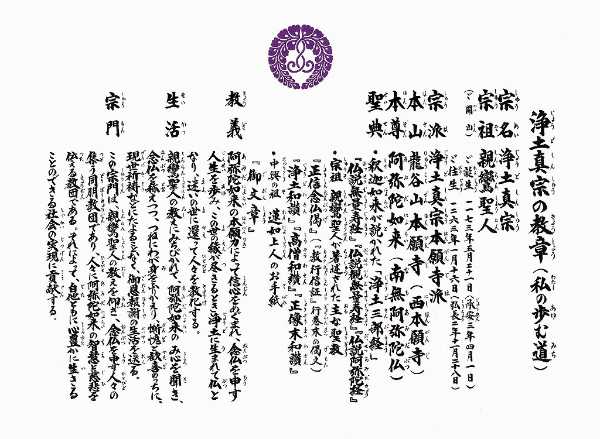 浄土真宗の教章（私の歩む道）
宗名 浄土真宗
宗祖 親鸞聖人
（ご開山）
ご誕生 一一七三年五月二十一日（承安三年四月一日）
ご往生 一二六三年一月十六日（弘長二年十一月二十八日）
宗派 浄土真宗本願寺派
本山 龍谷山本願寺（西本願寺）
本尊 阿弥陀如来（南無阿弥陀仏）
聖典
・釈迦如来が説かれた「浄土三部経」
『仏説無量寿経』『仏説観無量寿経』『仏説阿弥陀経』
・宗祖 親鸞聖人が著述された主な聖教
『正信念仏偈』（『教行信証』行巻末の偈文）
『浄土和讃』『高僧和讃』『正像末和讃』
・中興の祖 蓮如上人のお手紙
『御文章』
教義 阿弥陀如来の本願力によって信心をめぐまれ、念仏を申す
人生を歩み、この世の縁が尽きるとき浄土に生まれて仏と
なり、迷いの世に還って人々を教化する。
生活 親鸞聖人の教えにみちびかれて、阿弥陀如来のみ心を聞き、
念仏を称えつつ、つねにわが身をふりかえり、慚愧と歓喜のうちに、
現世祈祷などにたよることなく、御恩報謝の生活を送る。
宗門 この宗門は、親鸞聖人の教えを仰ぎ、念仏を申す人々の
集う同朋教団であり、人々に阿弥陀如来の智慧と慈悲を
伝える教団である。それによって、自他ともに心豊かに生きる
ことのできる社会の実現に貢献する。